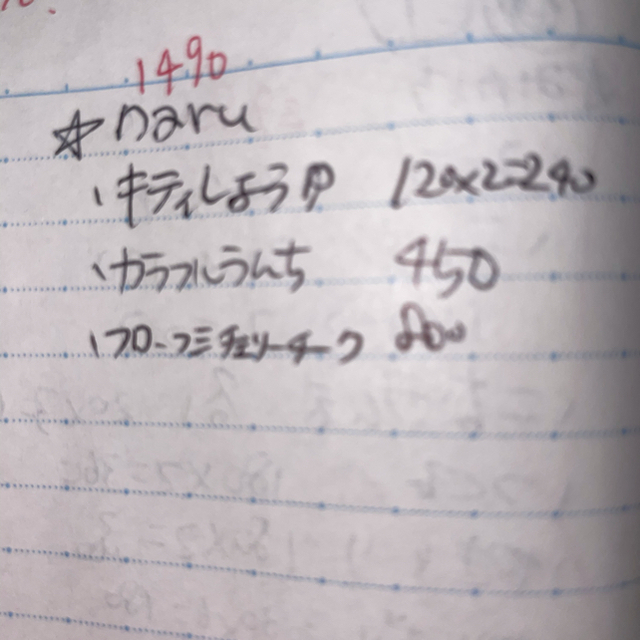 1490
☆naru
、キティしようP 120×2=240
、カラフルうんち 450
、フローフミチェリーチーク 800